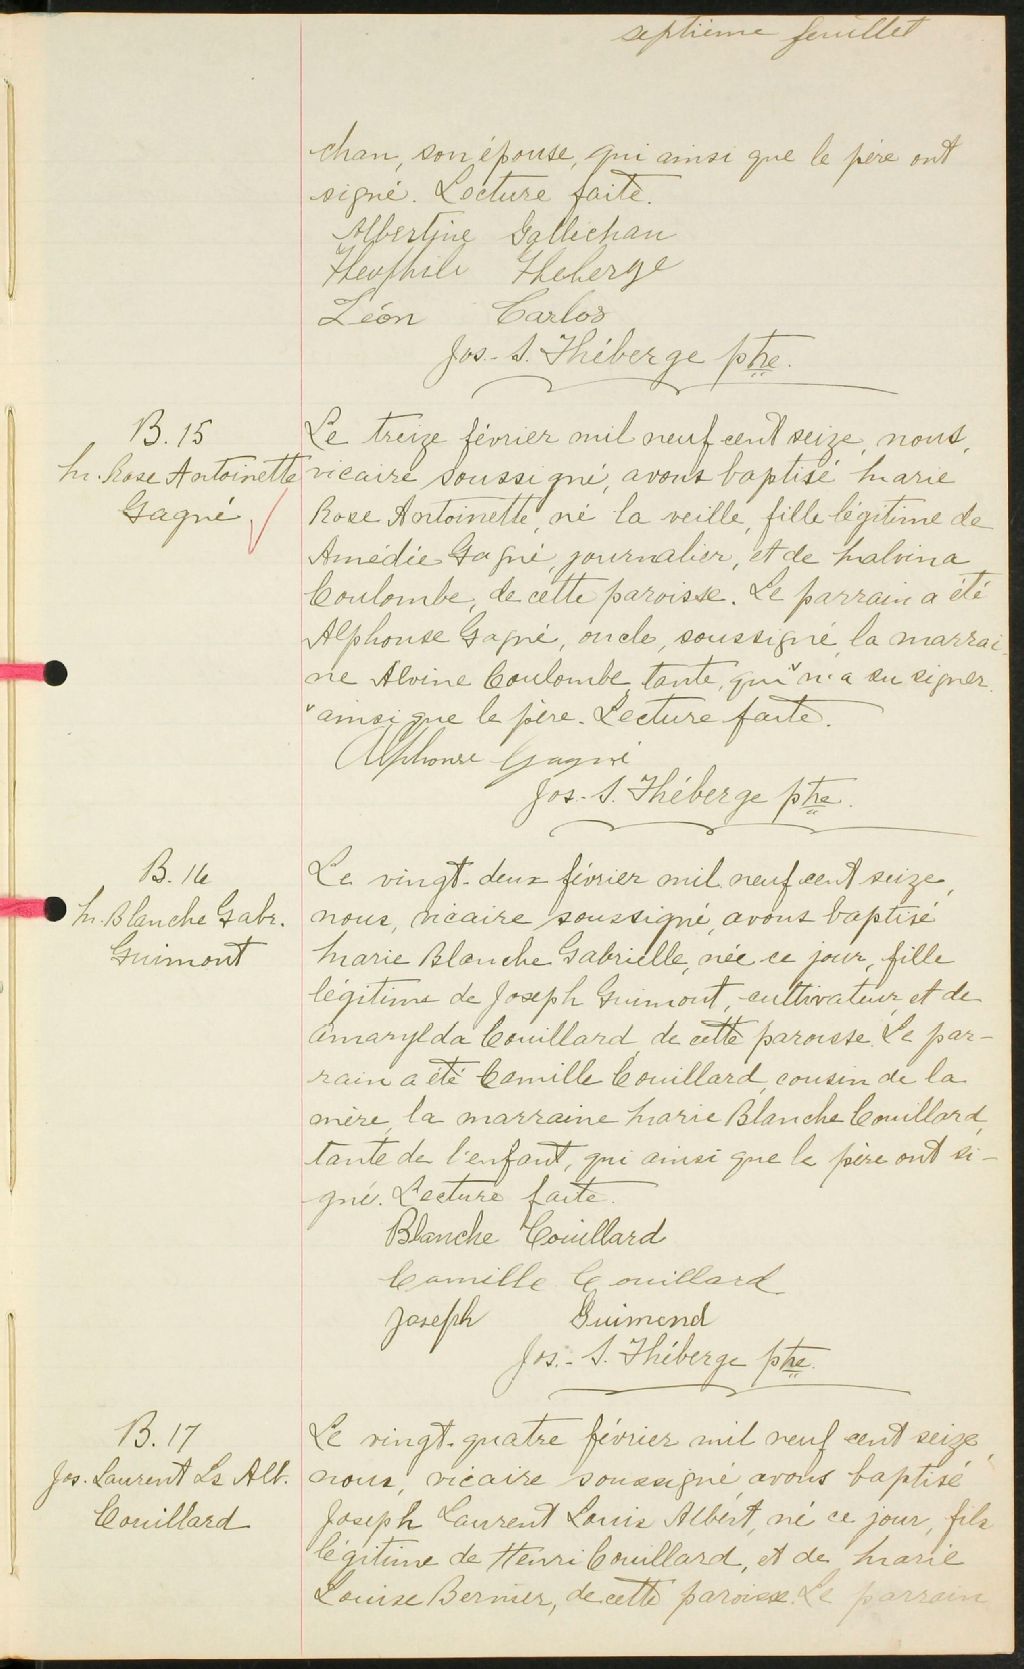 septième feuillet
chan, son épouse, qui ainsi que le père ont
signé. Lecture faite.
Albertine Gallichan
Theophile Theberge
Léon Carlos
Jos.-S. Théberge ptre.
B. 15
M. Rose Antoinette
Gagné
Le treize février mil neuf cent seize, nous,
vicaire soussigné, avons baptisé Marie
Rose Antoinette, né la veille, fille légitime de
Amédie Gagné, journalier, et de Malvina
Coulombe, de cette paroisse. Le parrain a été
Alphonse Gagné, oncle, soussigné, la marrai-
ne Alvine Coulombe, tante, qui ˅ n'a su signer.
˅ ainsi que le père. Lecture faite.
Alphonse Gagné
Jos.-S. Théberge ptre.
B. 16
M. Blanche Gabr.
Guimont
Le vingt-deux février mil neuf cent seize,
nous, vicaire soussigné, avons baptisé
Marie Blanche Gabrielle, née ce jour, fille
légitime de Joseph Guimont, cultivateur, et de
Amarylda Couillard, de cette paroisse. Le par-
rain a été Camille Couillard, cousin de la
mère, la marraine Marie Blanche Couillard,
tante de l'enfant, qui ainsi que le père ont si-
gné. Lecture faite.
Blanche Couillard
Camille Couillard
Joseph Guimond
Jos.-S. Théberge ptre.
B. 17
Jos. Laurent Ls Alb.
Couillard
Le vingt-quatre février mil neuf cent seize,
nous, vicaire soussigné, avons baptisé
Joseph Laurent Louis Albert, né ce jour, fils
légitime de Henri Couillard, et de Marie
Louise Bernier, de cette paroisse. Le parrain